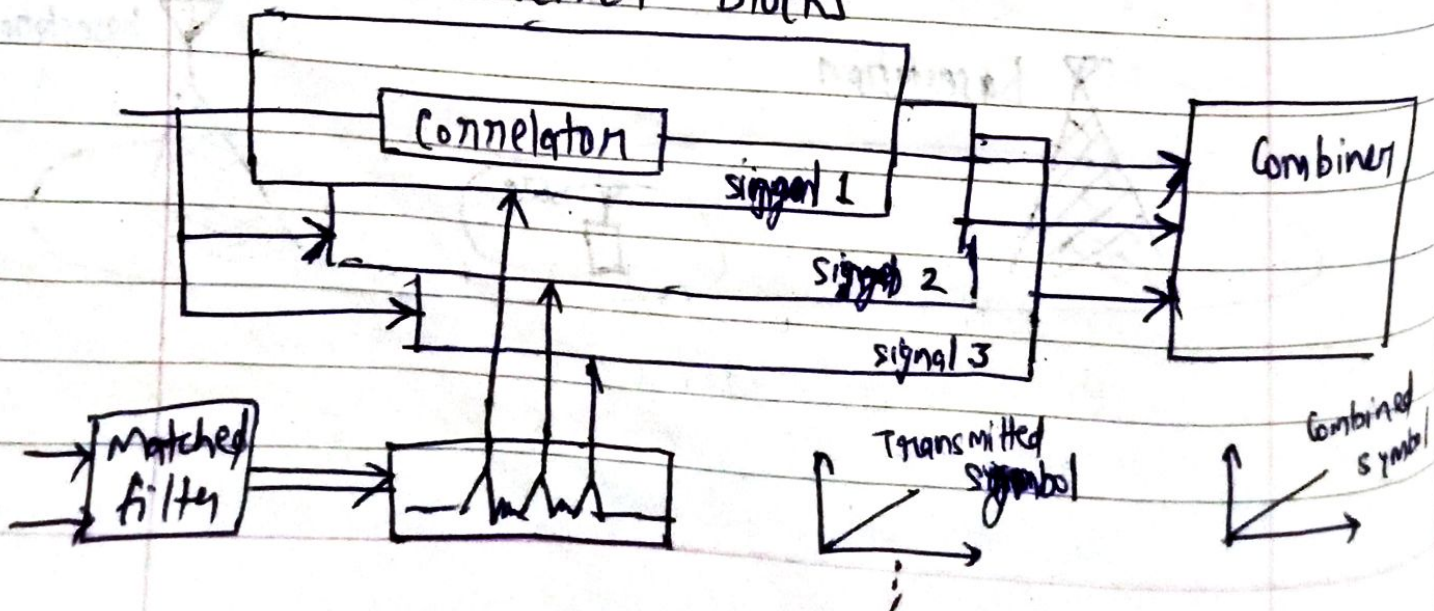 Blocks
Correlator
Combiner
signal 1
signal 2
signal 3
Matched
filter
Transmitted
symbol
Combined
symbol